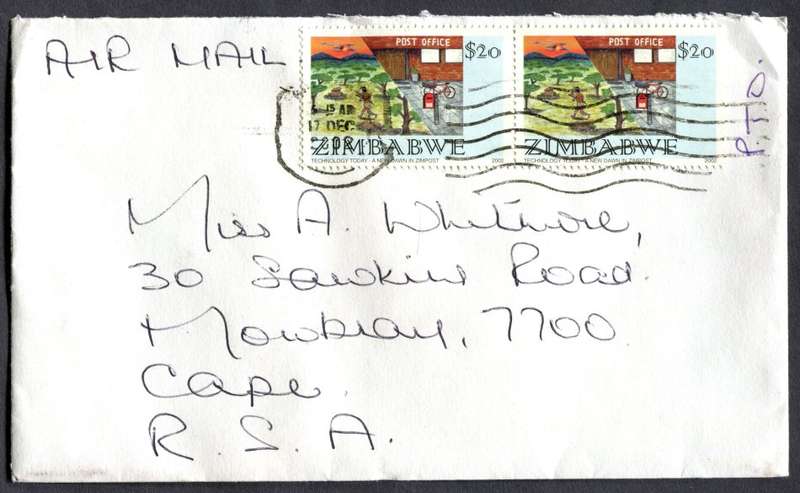 AIR MAIL
POST OFFICE
$20
ZIMBABWE
TECHNOLOGY TODAY - A NEW DAWN IN ZIMPOST
2002
POST OFFICE
$20
ZIMBABWE
TECHNOLOGY TODAY - A NEW DAWN IN ZIMPOST
2002
17 DEC
P.T.O.
Miss A. Whitmore,
30 Sawkins Road.
Mowbray, 7700
Cape.
R.S.A.